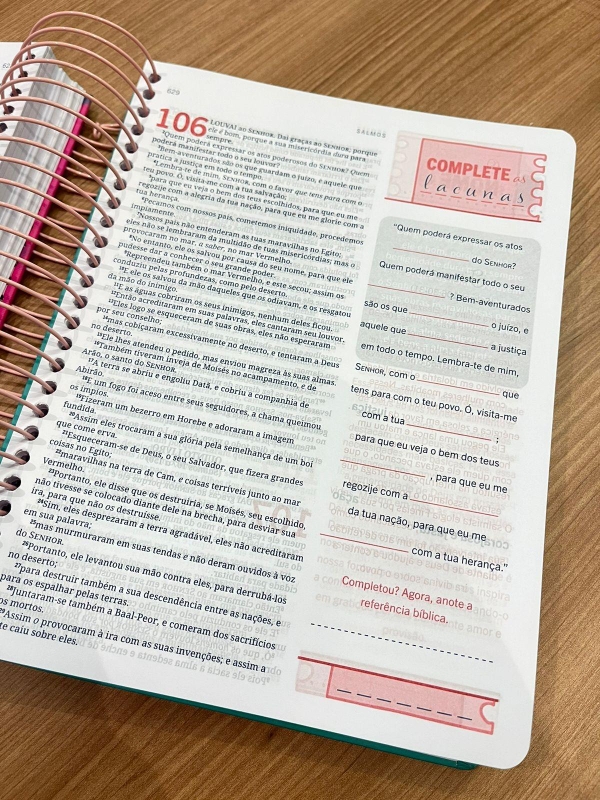 629
SALMOS
106 LOUVAI ao SENHOR. Dai graças ao SENHOR, porque
ele é bom, porque a sua misericórdia dura para
sempre.
²Quem poderá expressar os atos poderosos do SENHOR? Quem
poderá manifestar todo o seu louvor?
³Bem-aventurados são os que guardam o juízo, e aquele que
pratica a justiça em todo o tempo.
⁴Lembra-te de mim, SENHOR, com o favor que tens para com o
teu povo. Ó, visita-me com a tua salvação;
⁵para que eu veja o bem dos teus escolhidos, para que eu me
regozije com a alegria da tua nação, para que eu me glorie com a
tua herança.
⁶Pecamos com nossos pais, cometemos iniquidade, procedemos
impiamente.
⁷Nossos pais não entenderam as tuas maravilhas no Egito;
eles não se lembraram da multidão de tuas misericórdias; mas o
provocaram no mar, a saber, no mar Vermelho.
⁸No entanto, ele os salvou por causa do seu nome, para que ele
pudesse dar a conhecer o seu grande poder.
⁹Repreendeu também o mar Vermelho, e este secou; assim os
conduziu pelas profundezas, como pelo deserto.
¹⁰E ele os salvou da mão daqueles que os odiavam, e os resgatou
da mão do inimigo.
¹¹E as águas cobriram os seus inimigos, nenhum deles ficou.
¹²Então acreditaram em suas palavras, eles cantaram seu louvor.
¹³Eles logo se esqueceram de suas obras, eles não esperaram
por seu conselho.
¹⁴mas cobiçaram excessivamente no deserto, e tentaram a Deus
¹⁵Ele lhes atendeu o pedido, mas enviou magreza às suas almas.
¹⁶Também tiveram inveja de Moisés no acampamento, e de
Arão, o santo do SENHOR.
¹⁷A terra se abriu e engoliu Datã, e cobriu a companhia de
Abirão.
¹⁸E um fogo foi aceso entre seus seguidores, a chama queimou
os ímpios.
¹⁹Fizeram um bezerro em Horebe e adoraram a imagem
fundida.
²⁰Assim eles trocaram a sua glória pela semelhança de um boi
que come erva.
²¹Esqueceram-se de Deus, o seu Salvador, que fizera grandes
coisas no Egito;
²²maravilhas na terra de Cam, e coisas terríveis junto ao mar
Vermelho.
²³Portanto, ele disse que os destruiria, se Moisés, seu escolhido,
não tivesse se colocado diante dele na brecha, para desviar sua
ira, para que não os destruísse.
²⁴Sim, eles desprezaram a terra agradável, eles não acreditaram
em sua palavra;
²⁵mas murmuraram em suas tendas e não deram ouvidos à voz
do SENHOR.
²⁶Portanto, ele levantou sua mão contra eles, para derrubá-los
no deserto;
²⁷para destruir também a sua descendência entre as nações, e
para os espalhar pelas terras.
²⁸Juntaram-se também a Baal-Peor, e comeram dos sacrifícios
os mortos.
²⁹Assim o provocaram à ira com as suas invenções; e assim a
te caiu sobre eles.
COMPLETE as
lacunas
"Quem poderá expressar os atos
do SENHOR?
Quem poderá manifestar todo o seu
? Bem-aventurados
são os que o juízo, e
aquele que a justiça
em todo o tempo. Lembra-te de mim,
SENHOR, com o que
tens para com o teu povo. Ó, visita-me
com a tua ;
para que eu veja o bem dos teus
, para que eu me
regozije com a
da tua nação, para que eu me
com a tua herança."
Completou? Agora, anote a
referência bíblica.